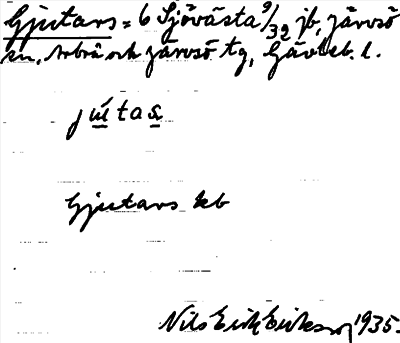 Gjutars = 6 Sjövästa 9/32 jb, Järvsö
sn, Arbrå och Järvsö tg, Gävleb. l.
jútas
Gjutars kb
Nils Erik Eriksson 1935.